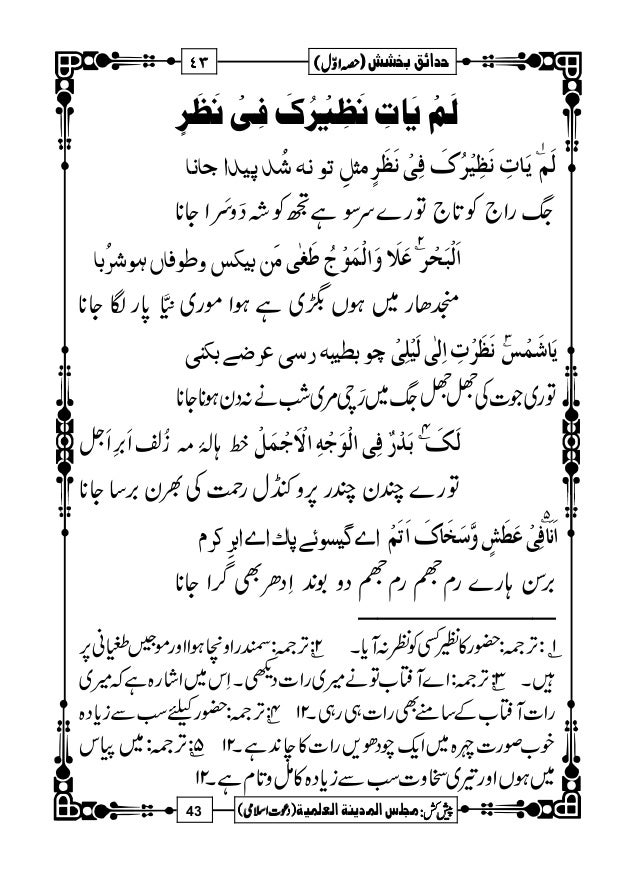 حدائق بخشش (حصہ اوّل) ٤٣
لَمْ یَاتِ نَظِیْرُکَ فِیْ نَظَرٍ
لَمْ یَاتِ نَظِیْرُکَ فِیْ نَظَرٍ مثلِ تو نہ شُد پیدا جانا
جگ راج کو تاج تورے سر سو ہے تجھ کو شہِ دَوسَرا جانا
اَلْبَحْرُ عَلَا وَالْمَوْجُ طَغٰی مَن بیکس وطوفاں ہوشرُبا
منجدھار میں ہوں بگڑی ہے ہوا موری نیَّا پار لگا جانا
یَاشَمْسُ نَظَرْتِ اِلٰی لَیْلِیْ چو بطیبہ رسی عرضے بکنی
توری جوت کی جھل جھل جگ میں رَچی مری شب نے نہ دن ہونا جانا
لَکَ بَدْرٌ فِی الْوَجْهِ الْاَجْمَلْ خط ہالۂ مہ زُلف ابرِ اَجل
تورے چندن چندر پرو کنڈل رحمت کی بھرن برسا جانا
اَنَا فِیْ عَطَشٍ وَّسَخَاکَ اَتَمْ اے گیسوئے پاك اے ابرِ کرم
برسن ہارے رم جھم رم جھم دو بوند اِدھر بھی گرا جانا
۱: ترجمہ: حضور کا نظیر کسی کو نظر نہ آیا۔ ۲: ترجمہ: سمندر اونچا ہوا اور موجیں طغیانی پر
ہیں۔ ۳: ترجمہ: اے آفتاب تو نے میری رات دیکھی۔ اِس میں اشارہ ہے کہ میری
رات آفتاب کے سامنے بھی رات ہی رہی۔ ۱۲ ۴: ترجمہ: حضور کیلئے سب سے زیادہ
خوب صورت چہرہ میں ایک چودھویں رات کا چاند ہے۔ ۱۲ ۵: ترجمہ: میں پیاس
میں ہوں اور تیری سخاوت سب سے زیادہ کامل و تام ہے۔ ۱۲
پیش کش: مجلس المدینۃ العلمیۃ (دعوتِ اسلامی) 43